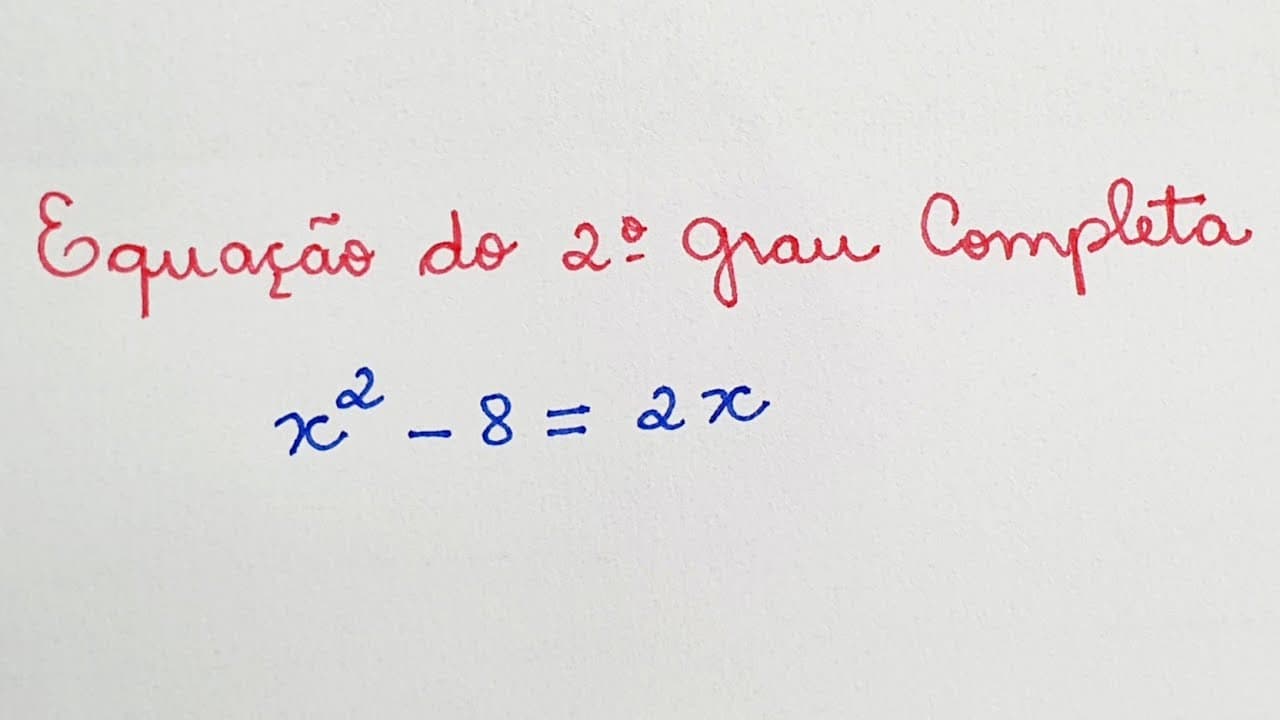 Equação do 2º grau Completa
x² - 8 = 2x